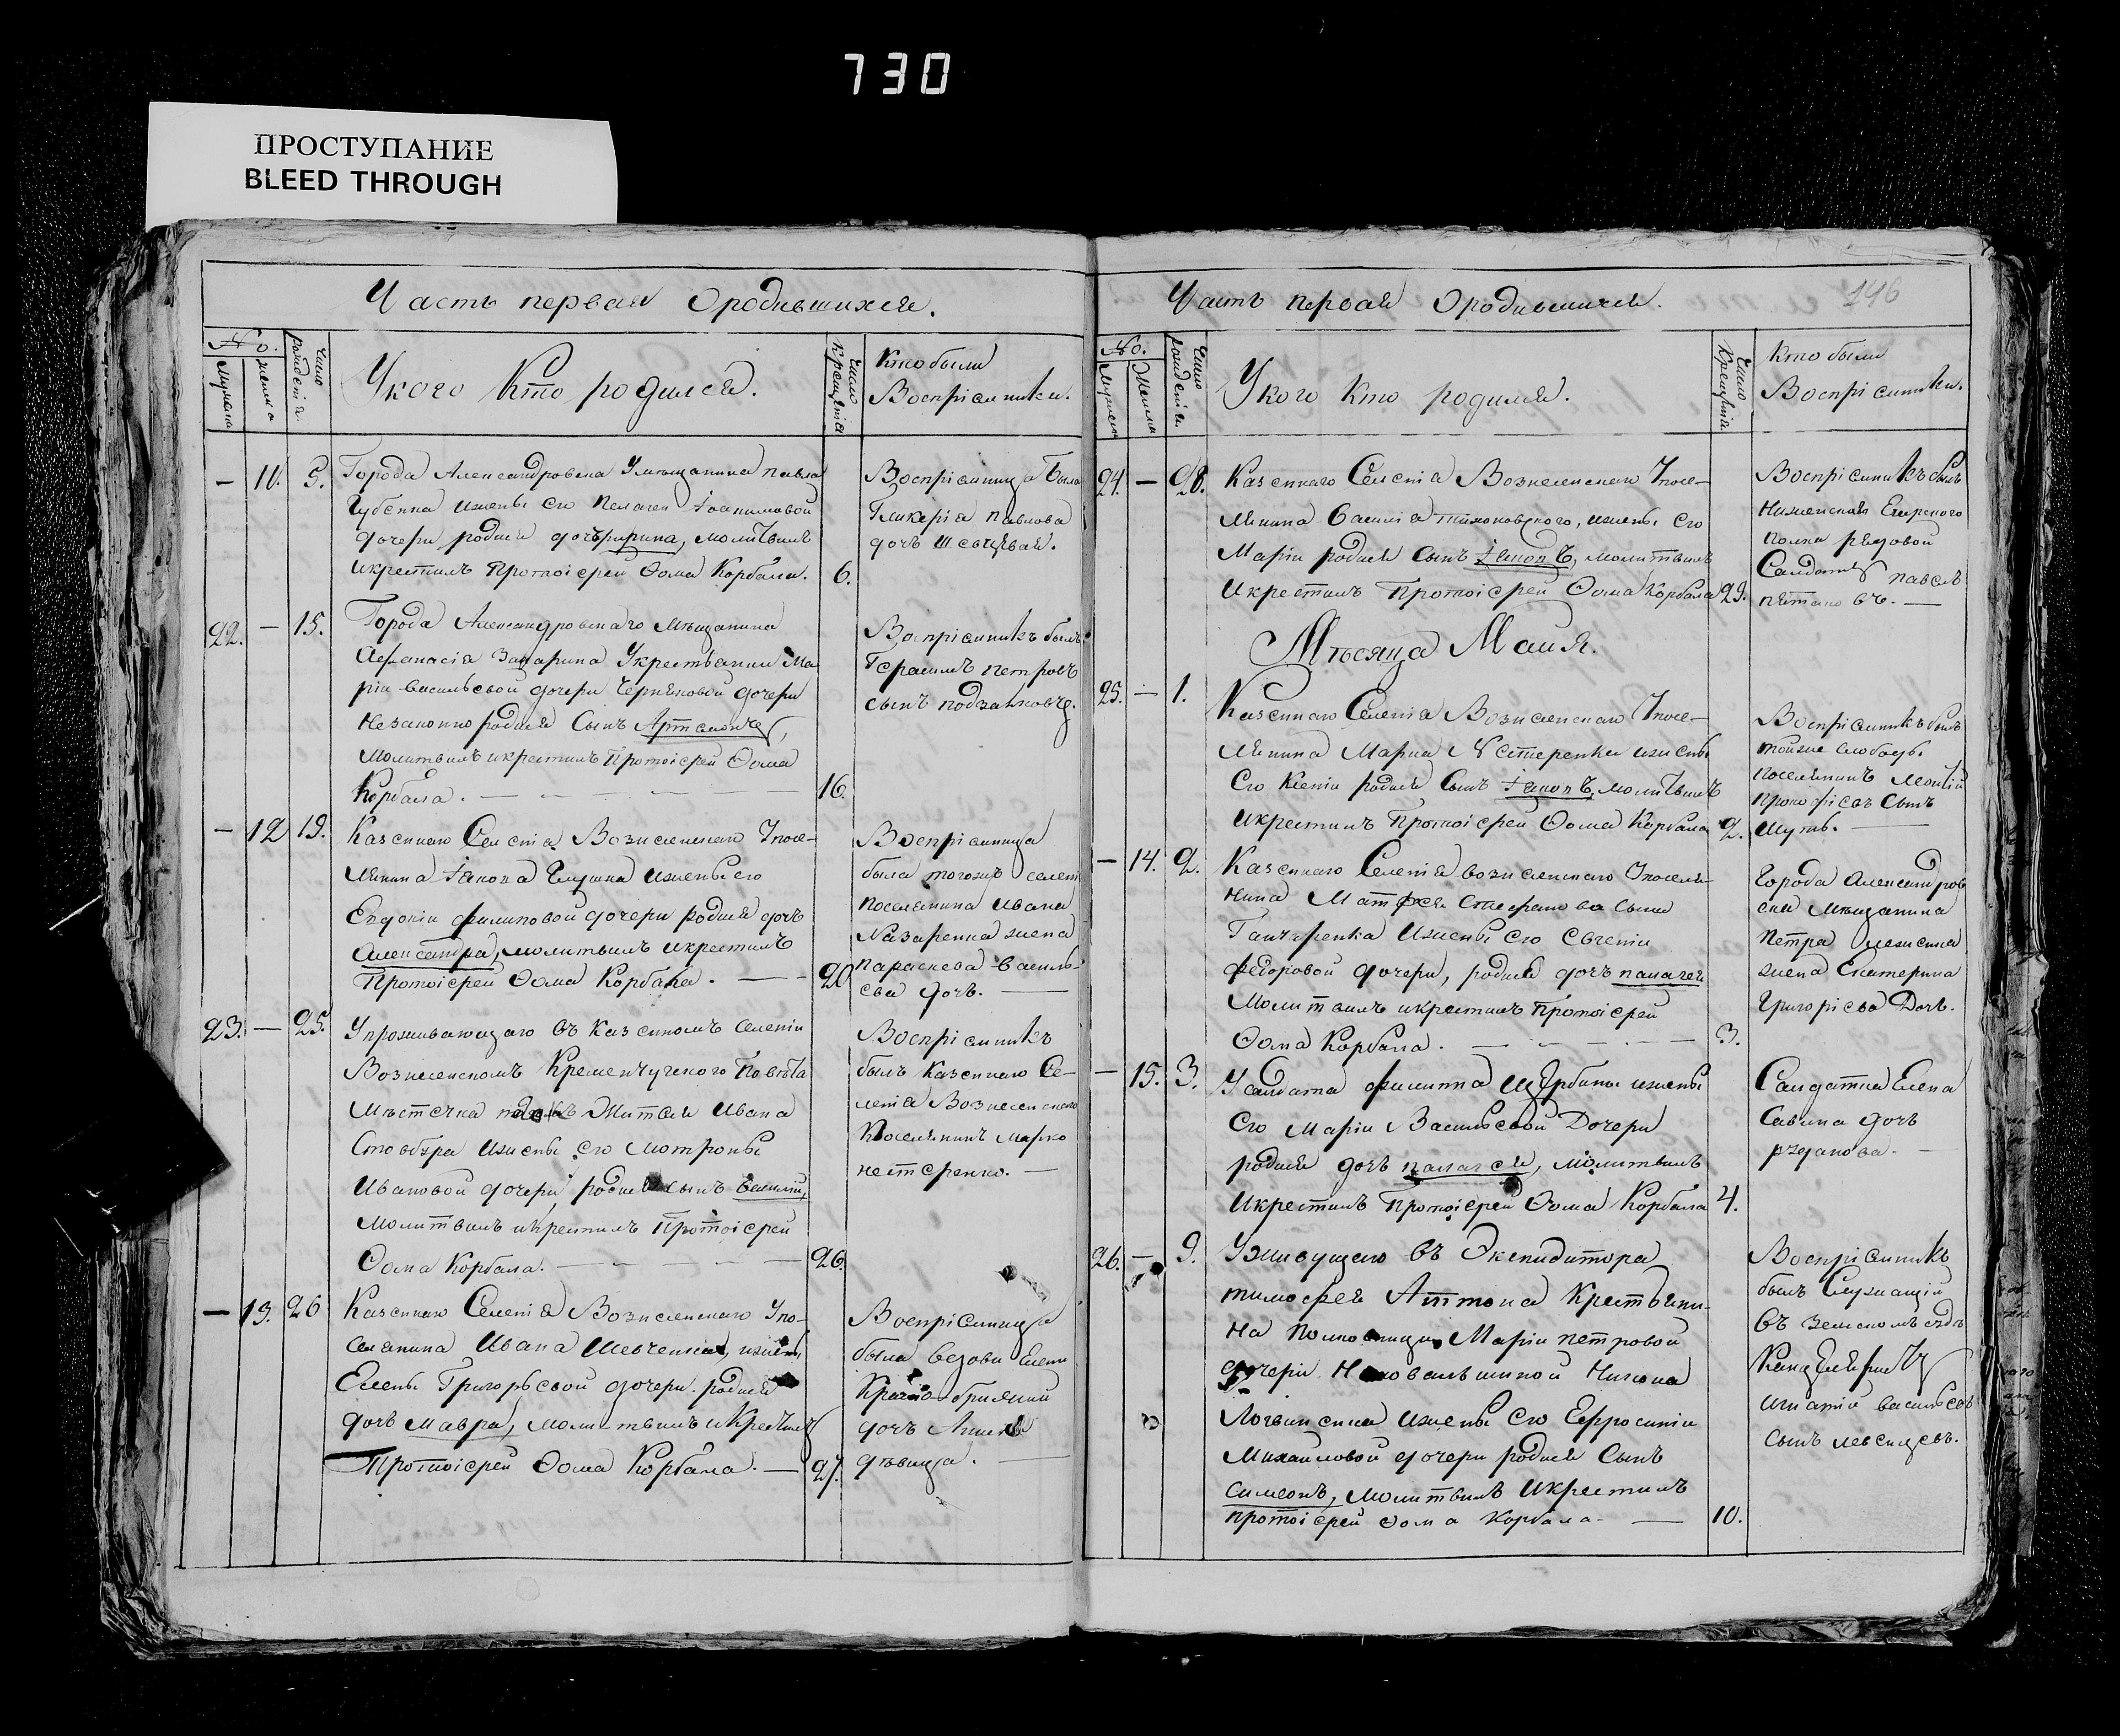 730
ПРОСТУПАНИЕ
BLEED THROUGH
Часть первая Ородившихся.
No.
мужеска
женска
Число рождения.
Укого Кто родился.
Число крещения
Кто были
Воспріемники.
— 11. 5.
Города Александровска Умещанина павла
Губенка ижены его Пелагеи Іоакимовой
дочери родися дочь ирина, молитвилъ
икрестилъ Протоіерей Ѳома Корбала. 6.
Воспріемница была
Гликерія павлова
дочь Шевцевая.
22. — 15.
Города Александровскаго Мещанина
Афанасія Захарина Укрестьянки Ма
ріи васильевой дочери Черняковой дочери
Незаконно родися Сынъ Артемонъ,
Молитвилъ икрестилъ Протоіерей Ѳома
Корбала. 16.
Воспріемникъ былъ
Герасимъ петровъ
сынъ
— 12 19.
Казеннаго Селенія Вознесенскаго Упосе-
лянина Іакова Глушка ижены его
Евдокіи филиповой дочери родися дочь
Александра, молитвилъ икрестилъ
Протоіерей Ѳома Корбала. 20
Воспріемница
была тогожъ селенія
поселянина ивана
Назаренка жена
параскева василь-
ева дочь.
23. — 25.
Упроживающаго въ казенномъ селеніи
Вознесенскомъ Кременчугскаго Повѣта
Мѣстечка Жителя ивана
Столбыра ижены его Мотроны
ивановой дочери родися сынъ василій,
Молитвилъ икрестилъ Протоіерей
Ѳома Корбала. 26.
Воспріемникъ
былъ казеннаго Се-
ленія Вознесенскаго
Поселянинъ Марко
нестеренко.
— 13. 26
Казеннаго Селенія Вознесенскаго Упо-
селянина Ивана Шевченка, ижены
Елены Григорьевой дочери родися
дочь мавра, молитвилъ икрестилъ
Протоіерей Ѳома Корбала. — 27.
Воспріемница
была вдови Елени
дочь
дѣвица.
Часть первая Ородившихся.
146
No.
Мужеска
Женска
Число рожденія.
Укого кто родился.
Число Крещенія
Кто были
Воспріемники.
24. — 28.
Казеннаго Селенія Вознесенскаго Упосе-
лянина Василія тихоновского, ижены его
Маріи родися сынъ Іаковъ, молитвилъ
икрестилъ Протоіерей Ѳома Корбала 29.
Воспріемникъ былъ
Полка рядовой
Салдатъ павелъ
Мѣсяца Маия.
25. — 1.
Казеннаго Селенія Вознесенскаго Упосе-
лянина Марка Нестеренка ижены
Его Ксеніи родися Сынъ Іаковъ, молитвилъ
икрестилъ Протоіерей Ѳома Корбала 2.
Воспріемникъ былъ
тойже слободы
поселянинъ
прокофіевъ Сынъ
Шуть.
— 14. 2.
Казеннаго Селенія вознесенскаго Упоселя-
нина Матфея Стефанова сына
Ганчаренка ижены его Евгеніи
федоровой дочери, родися дочь палагея
Молитвилъ икрестилъ Протоіерей
Ѳома Корбала. 3.
Города Александров
ска мещанина
Петра
жена Екатерина
Григоріева Дочь.
— 15. 3.
Усалдата филиппа Щербины ижены
Его Маріи Васильевой Дочери
родися дочь палагея, молитвилъ
Икрестилъ Протоіерей Ѳома Корбала 4.
Салдатка Елена
Савина дочь
26. — 9.
Уживущаго въ Экспидитора
тимофея Аттона Крестьяни-
на Полковници Маріи петровой
дочери Никона
Логвиненка ижены его Ефросиніи
Михайловой дочери родися Сынъ
Симеонъ, молитвилъ Икрестилъ
протоіерей Ѳома Корбала — 10.
Воспріемникъ
былъ Служащій
въ земскомъ судѣ
Канцеляристъ
игнатій васильевъ
сынъ